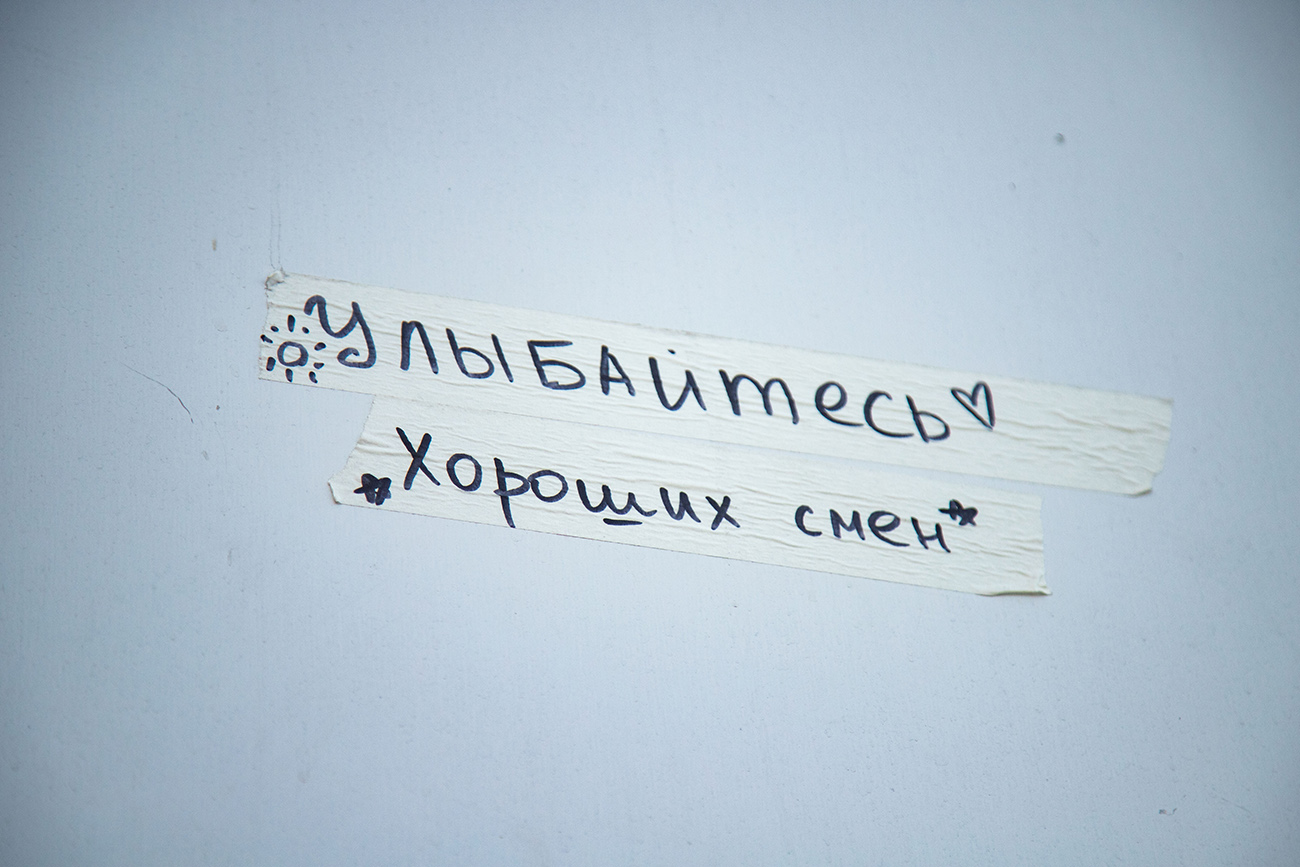 Улыбайтесь♡
Хороших смен